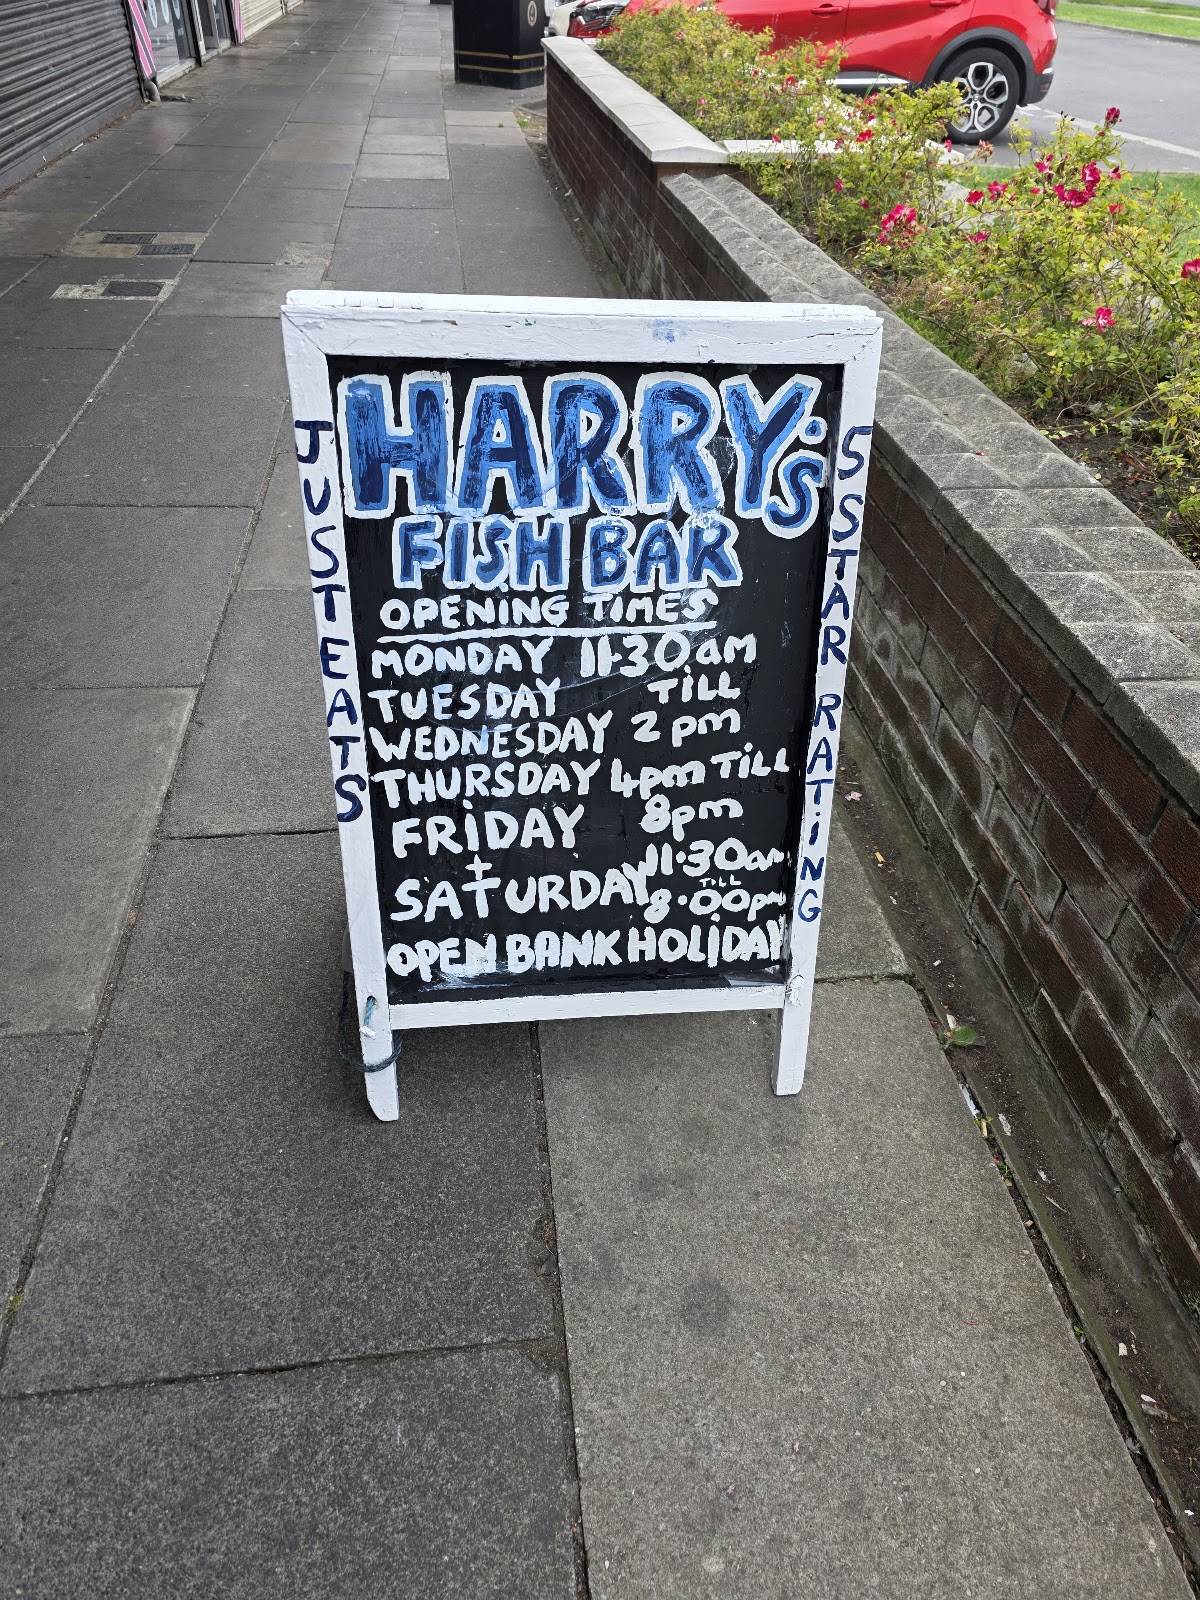 HARRY'S
FISH BAR
OPENING TIMES
MONDAY 11·30am
TUESDAY TiLL
WEDNESDAY 2pm
THURSDAY 4pm TiLL
FRiDAY 8pm
+
SATURDAY 11·30am
TiLL
8·00pm
OPEN BANK HOLiDAY
JUST EATS
5 STAR RATiNG